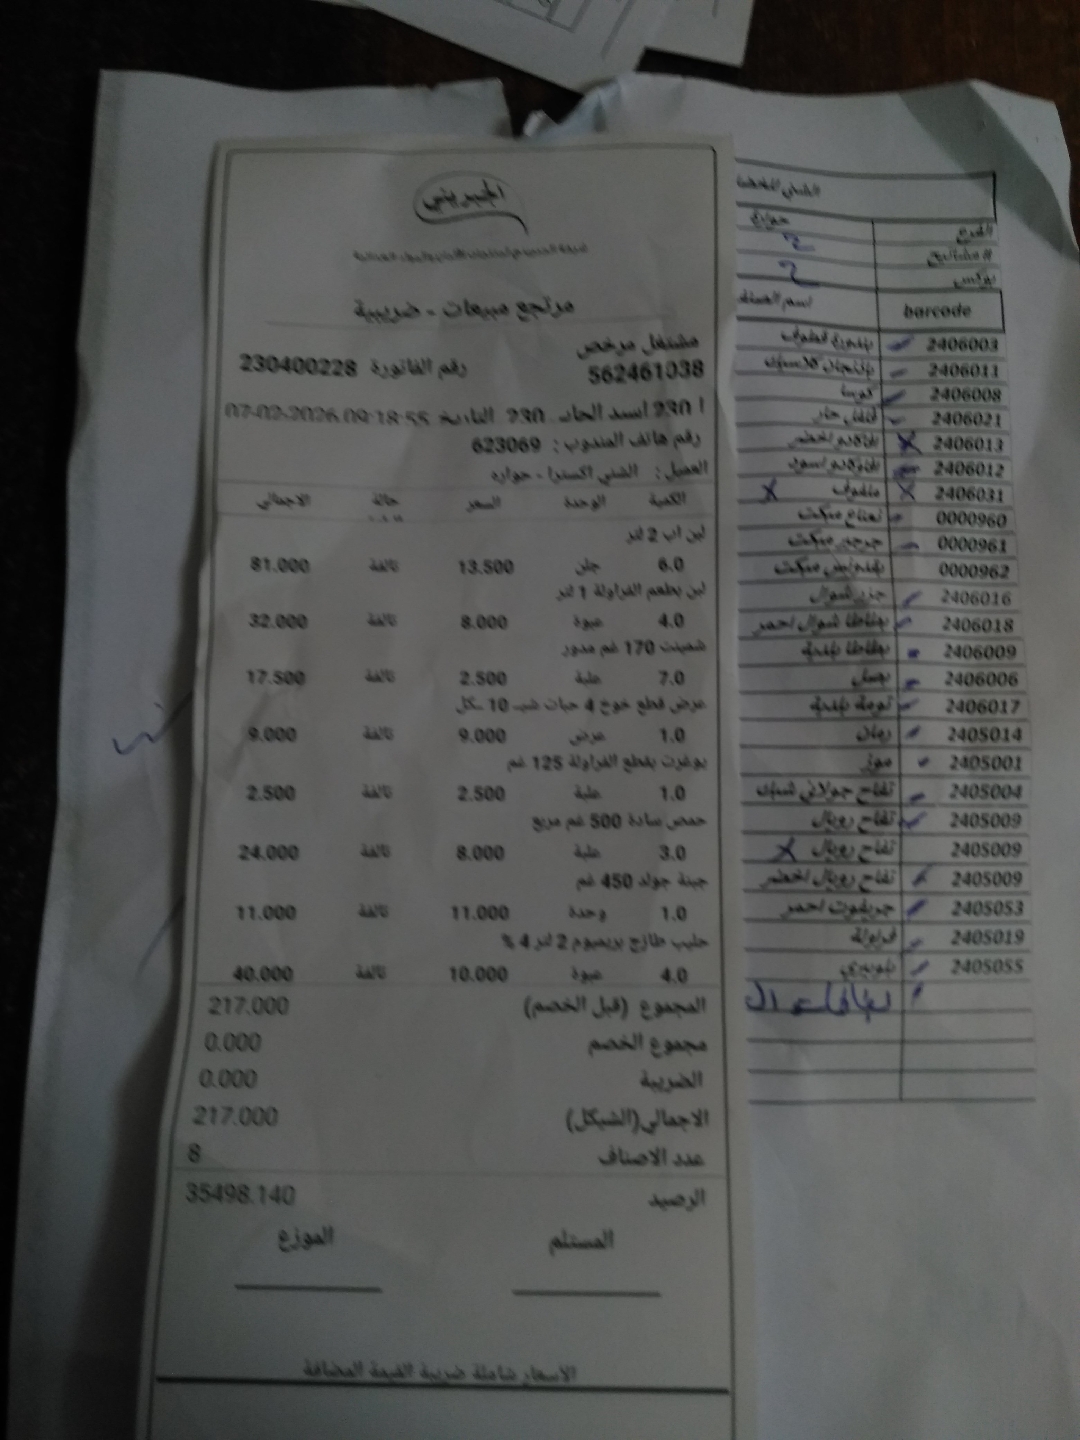 الجبريني
مرتجع مبيعات - ضريبية
مشتغل مرخص
562461038
رقم الفاتورة 230400228
230 التاريخ 07-02-2026 09:18:55
رقم هاتف المندوب : 623069
العميل : الشني اكسترا - حواره
الكمية الوحدة السعر حالة الاجمالي
لبن اب 2 لتر
6.0 جلن 13.500 تالفة 81.000
لبن بطعم الفراولة 1 لتر
4.0 عبوة 8.000 تالفة 32.000
شمينت 170 غم مدور
7.0 علبة 2.500 تالفة 17.500
عرض قطع خوخ 4 حبات شب 10 شكل
1.0 عرض 9.000 تالفة 9.000
يوغرت بقطع الفراولة 125 غم
1.0 علبة 2.500 تالفة 2.500
حمص سادة 500 غم مربع
3.0 علبة 8.000 تالفة 24.000
جبنة جولد 450 غم
1.0 وحدة 11.000 تالفة 11.000
حليب طازج بريميوم 2 لتر 4 %
4.0 عبوة 10.000 تالفة 40.000
المجموع (قبل الخصم) 217.000
مجموع الخصم 0.000
الضريبة 0.000
الاجمالي(الشيكل) 217.000
عدد الاصناف 8
الرصيد 35498.140
المستلم الموزع
الأسعار شاملة ضريبة القيمة المضافة
الفرع حوارة
2
بوكس 2
barcode اسم الصنف
2406003
2406011 باذنجان كلاسيك
2406008 كوسا
2406021 فلفل حار
2406013
2406012
2406031 ملفوف X
0000960 نعناع مبكت
0000961 جرجير مبكت
0000962 بقدونس مبكت
2406016 جزر شوال
2406018 بطاطا شوال احمر
2406009 بطاطا بلدية
2406006 بصل
2406017 ثومة بلدية
2405014 رمان
2405001 موز
2405004 تفاح جولاني شبك
2405009 تفاح رويال
2405009 تفاح رويال X
2405009 تفاح رويال اخضر
2405053 جريفوت احمر
2405019 فراولة
2405055 بلوبيري